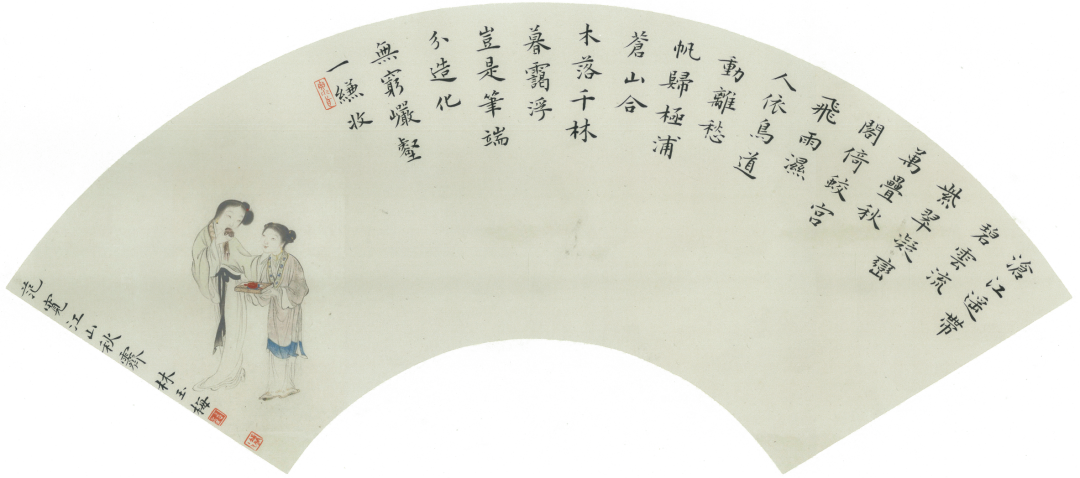 滄江遥帶
碧雲流
紫翠凝巒
萬疊秋
閣倚鮫宮
飛雨濕
人依鳥道
動離愁
帆歸極浦
蒼山合
木落千林
暮靄浮
豈是筆端
分造化
無窮巗壑
一縑收
范寬江山秋霽 林玉梅